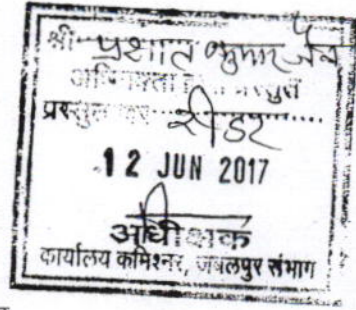 श्री प्रशांत कुमार जैन
अभिभाषक द्वारा प्रस्तुत
प्रस्तुतकार रीडर
12 JUN 2017
अधीक्षक
कार्यालय कमिश्नर, जबलपुर संभाग